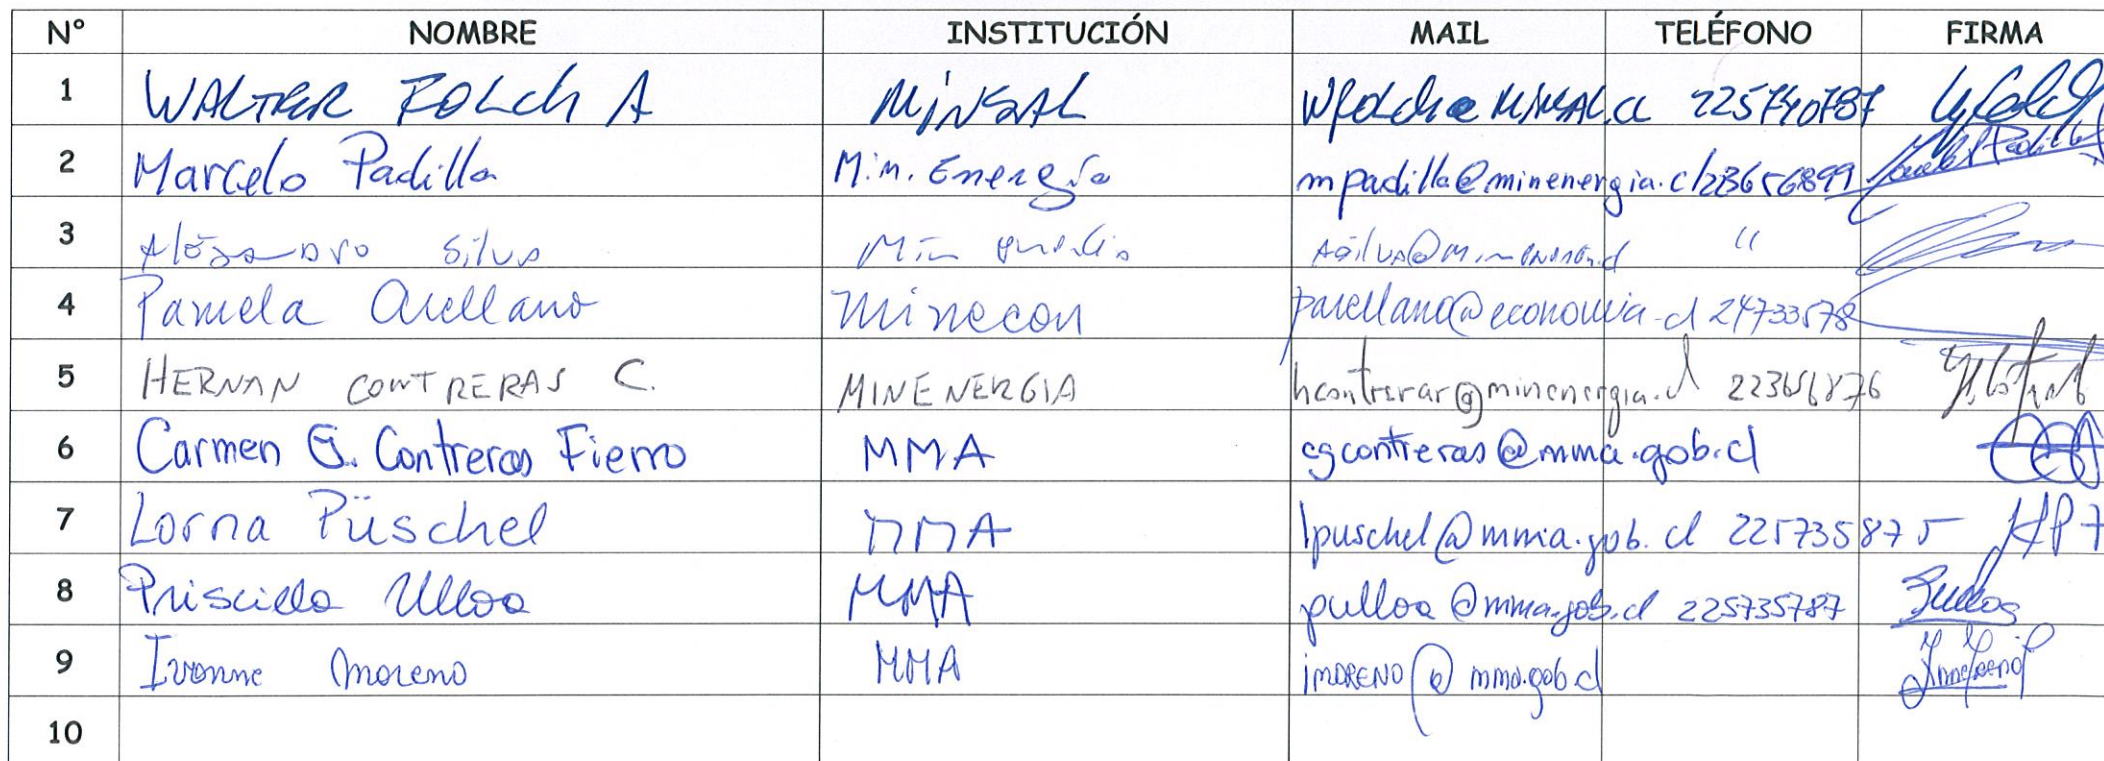 N° NOMBRE INSTITUCIÓN MAIL TELÉFONO FIRMA
1 WALTER FOLCH A MINSAL wfolch@MINSAL.CL 225740787
2 Marcelo Padilla Min. Energía mpadilla@minenergia.cl 23656899 Marcelo Padilla
3 Alejandro Silva Min "
4 Pamela Arellano Minecon parellano@economia.cl 24733578
5 HERNAN CONTRERAS C. MINENERGIA hcontreras@minenergia.cl 223656876
6 Carmen G. Contreras Fierro MMA cgcontreras@mma.gob.cl
7 Lorna Püschel MMA lpuschel@mma.gob.cl 225735875
8 Priscilla Ulloa MMA pulloa@mma.gob.cl 225735787
9 Ivonne Moreno MMA imoreno@mma.gob.cl
10